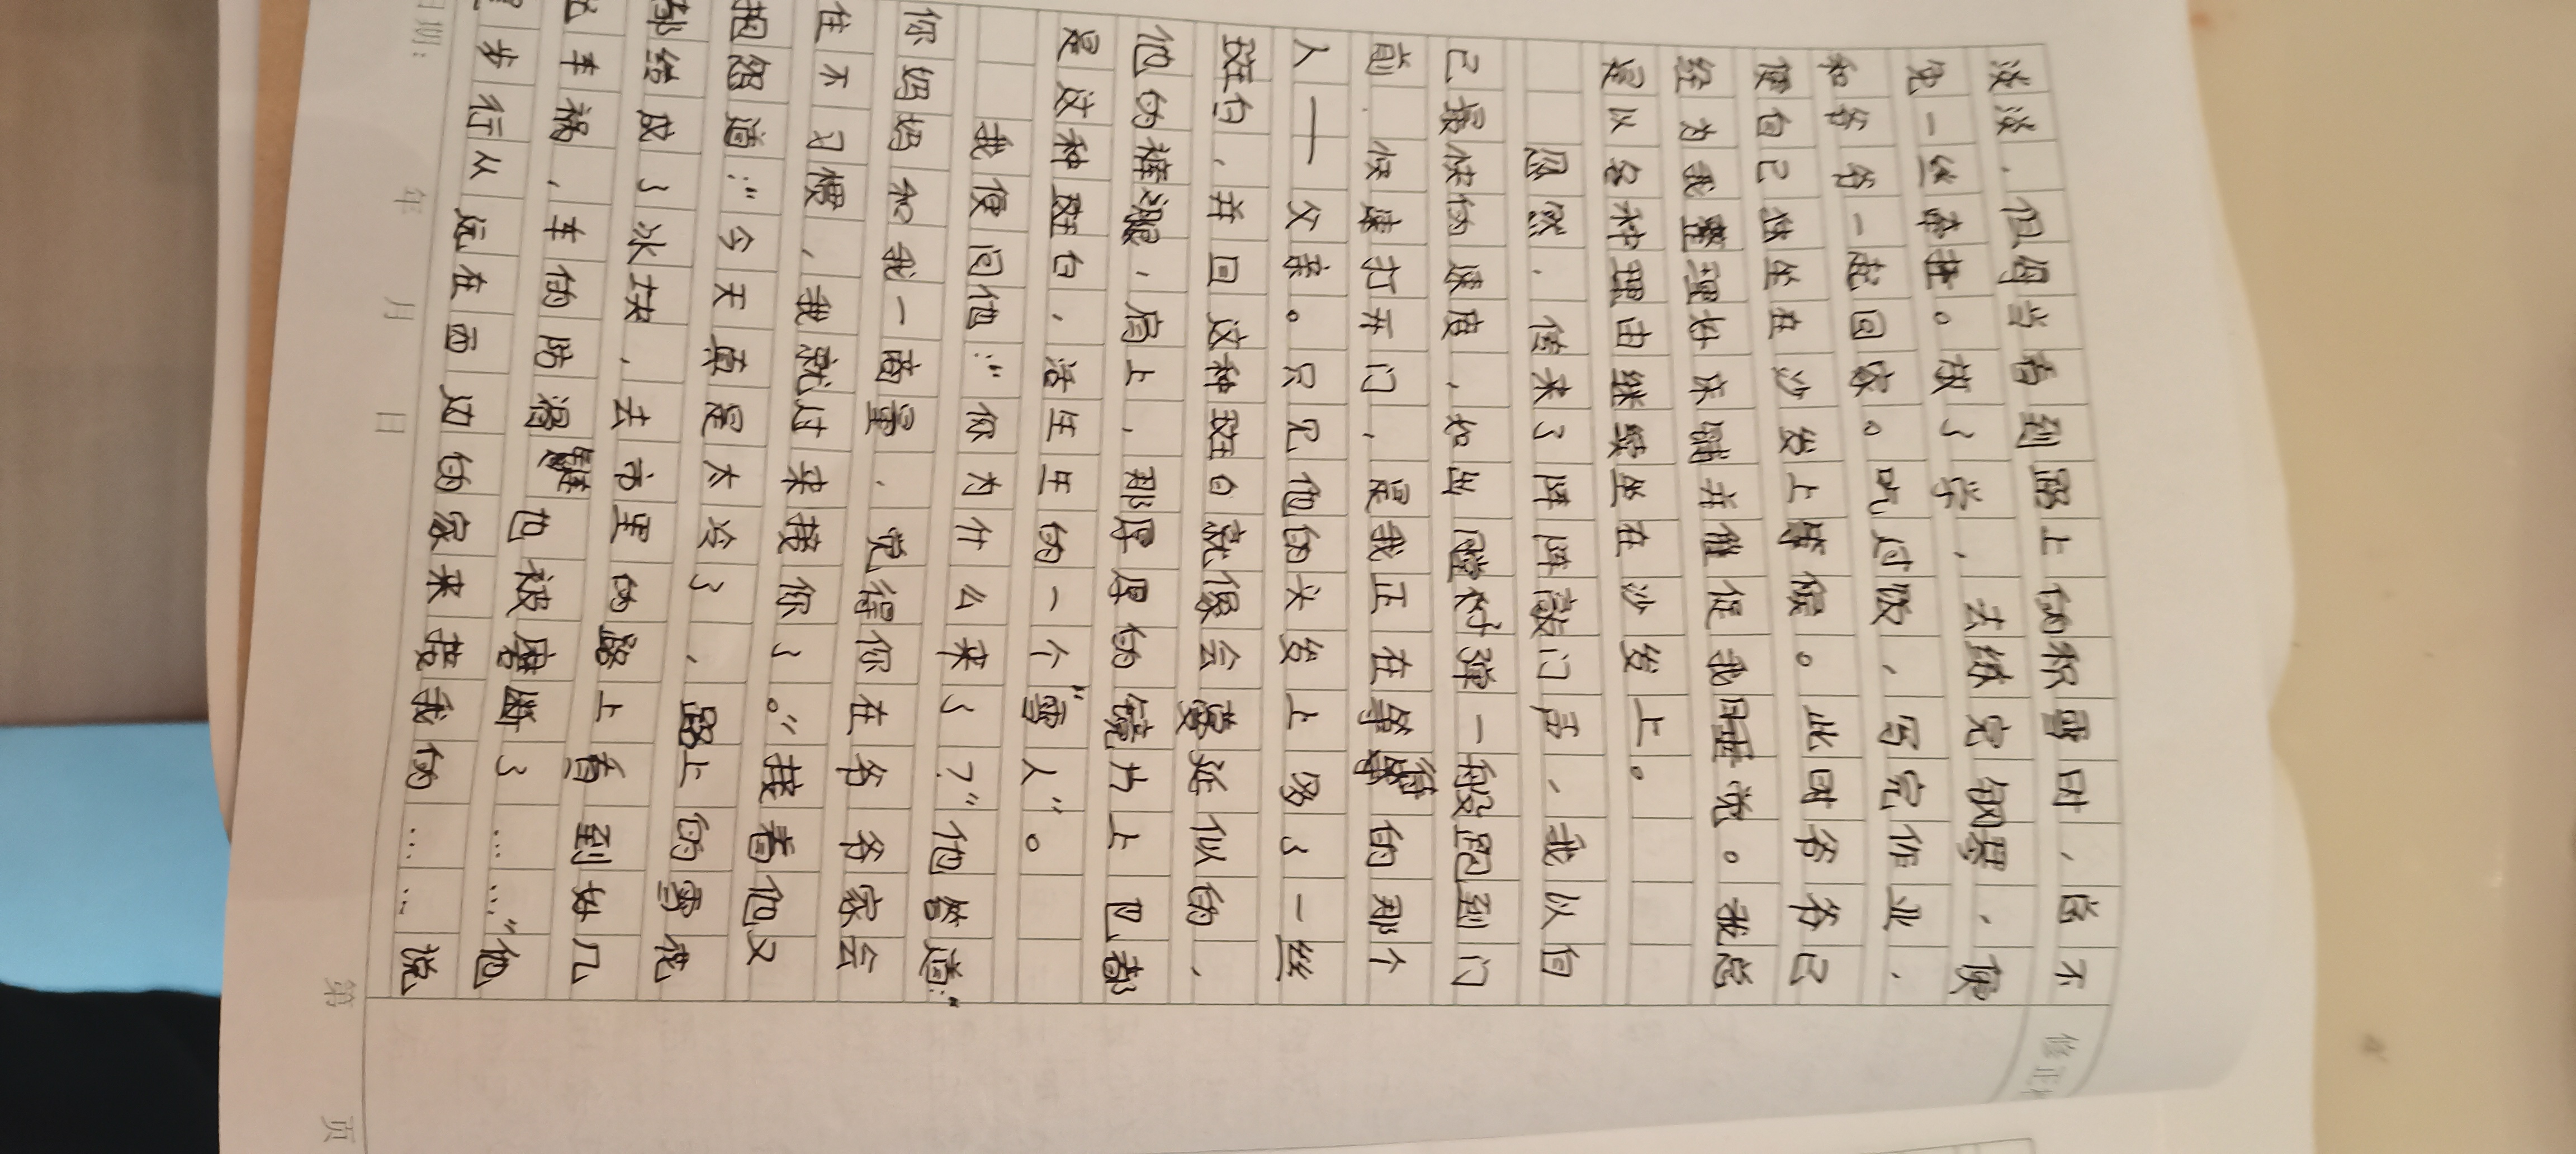 修正
淡淡,但每当看到路上的积雪时,尚不
免一丝牵挂。放了学,去练完钢琴,便
和爷爷一起回家。吃过饭,写完作业,
便自己独坐在沙发上等候。此时爷爷已
经为我整理好床铺并催促我睡觉。我总
是以各种理由继续坐在沙发上。
忽然,传来了阵阵敲门声,我以自
己最快的速度,如出膛弹一般跑到门
前,快速打开门,是我正在等的那个
人——父亲。只见他的头发上多了一丝
斑白,并且这种斑白就像会蔓延似的,
他的裤腿,肩上,那厚厚的镜片上也都
是这种斑白,活生生的一个“雪人”。
我便问他:“你为什么来了?”他答道:“
你妈妈和我一商量,觉得你在爷爷家会
住不习惯,我就过来接你了。”接着他又
抱怨道:“今天真是太冷了,路上的雪我
都给成了冰块,去市里的路上看到好几
起车祸,车的防滑链也被磨断了……”他
是步行从远在西边的家来接我的……说
日期: 年 月 日
第 页